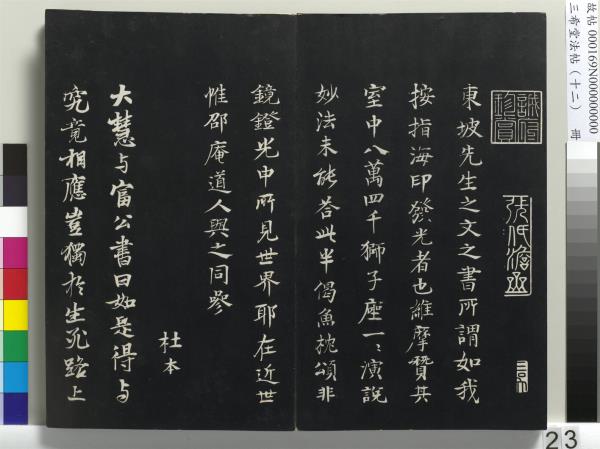 故帖 000169N000000000
三希堂法帖（十二） 冊
東坡先生之文之書所謂如我
按指海印發光者也維摩贊其
室中八萬四千獅子座一一演說
妙法未能答此半偈魚枕頌非
鏡鐙光中所見世界耶在近世
惟邵庵道人與之同參
杜本
大慧与富公書曰如是得与
究竟相應豈獨於生死路上
23